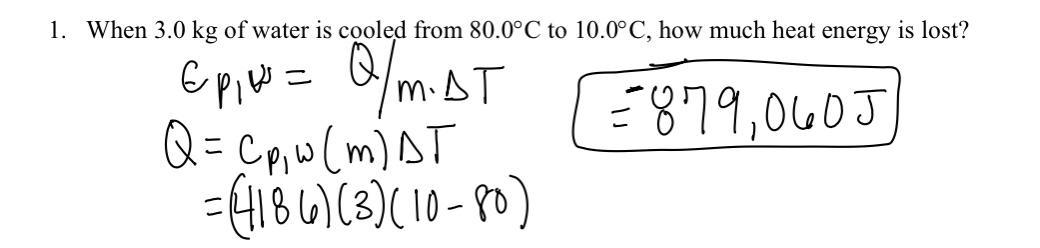 1. When 3.0 kg of water is cooled from 80.0°C to 10.0°C, how much heat energy is lost?
Cp,w = Q/m·ΔT
Q = Cp,w(m)ΔT
=(4186)(3)(10-80)
=-879,060J